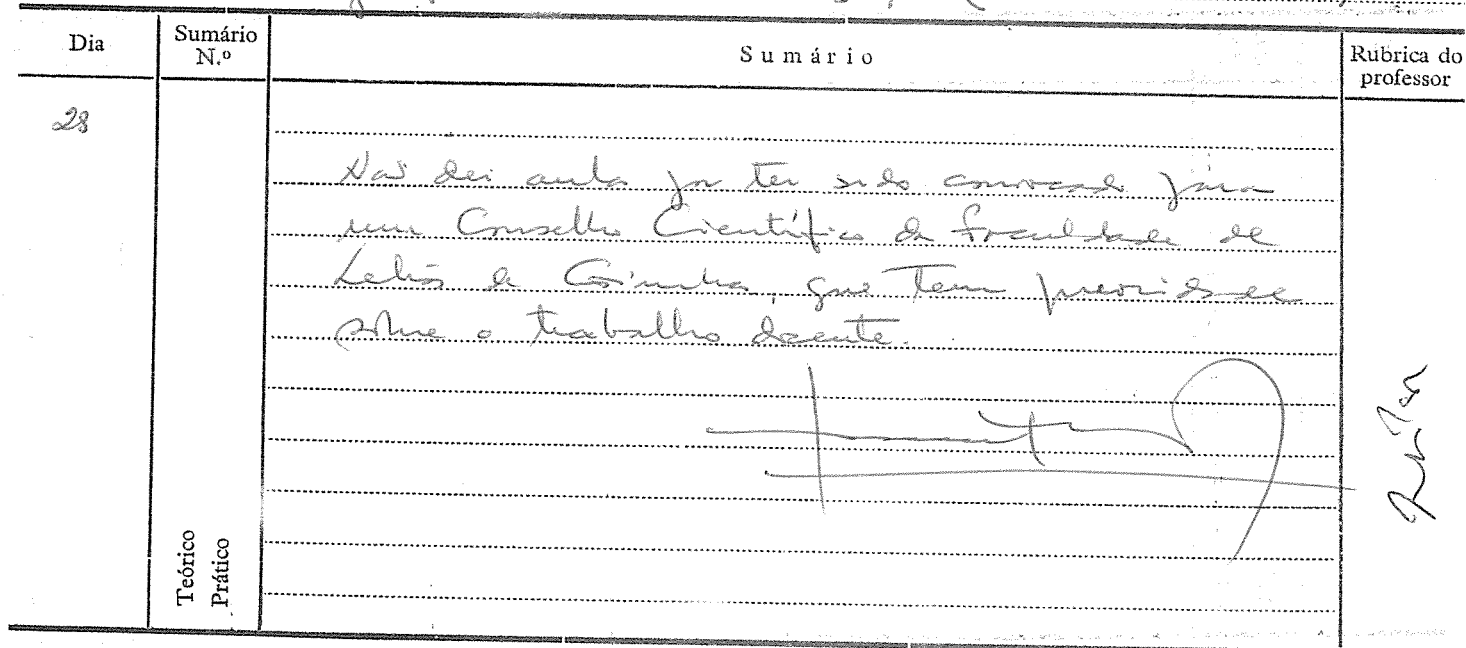 Dia
Sumário N.º
Sumário
Rubrica do professor
28
Não dei aula por ter sido convocado para
um Conselho Científico da Faculdade de
Letras de Coimbra, que tem precedência
sobre o trabalho docente.
Teórico
Prático